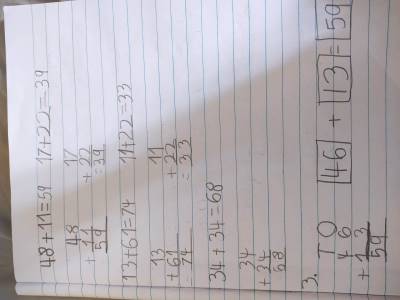 48+11=59 17+22=39
48 17
+11 +22
59 =39
13+61=74 11+22=33
13 11
+61 +22
=74 =33
34+34=68
34
+34
68
3. T O 46 + 13 = 59
4 6
+1 3
59